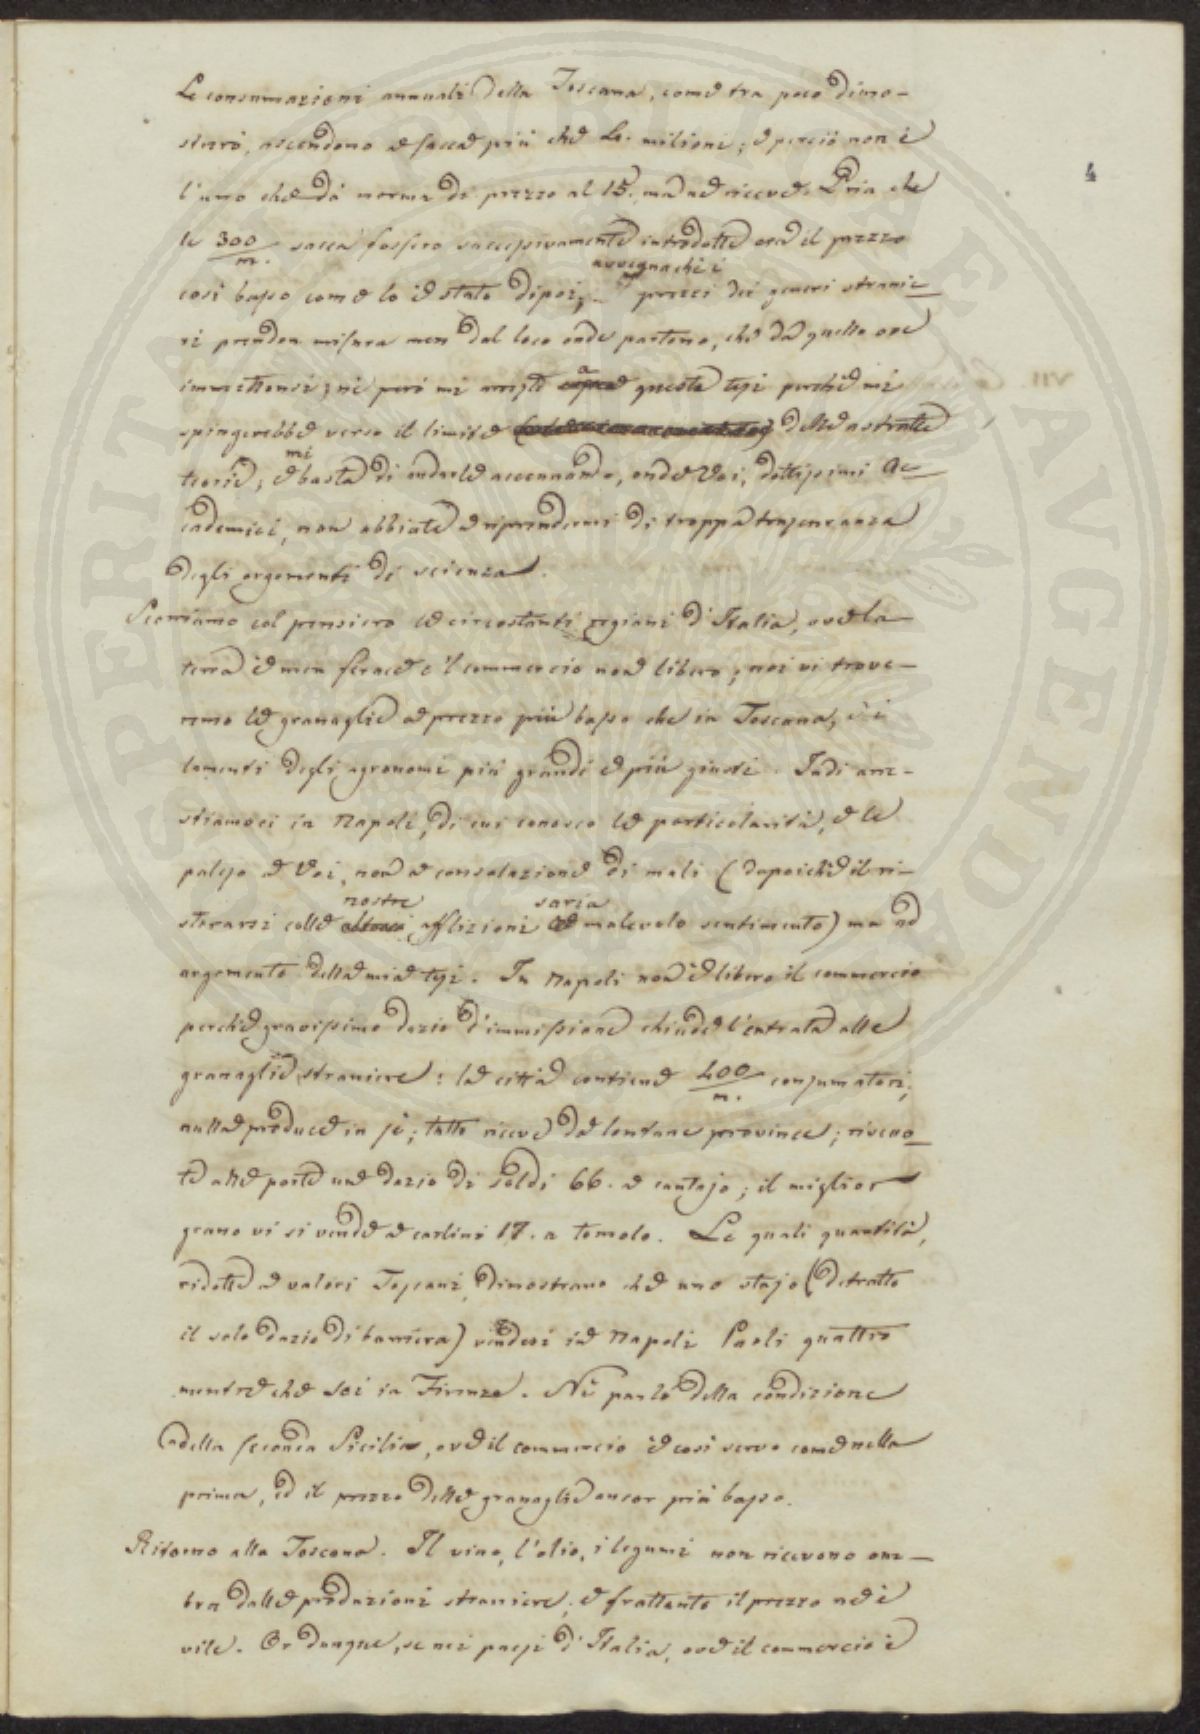 4
Le consumazioni annuali della Toscana, come tra poco dimo-
strerò, ascendono a sacca più che le milioni; e perciò non è
l'uno che dà norma di prezzo al 15, ma ne riceve. Pria che
le 300/m. sacca fossero successivamente introdotte era il prezzo
così basso come lo è stato dipoi;
avvegnachè i
prezzi dei generi stranie-
ri prendon misura men dal loco onde partono, che da quello ove
immettonsi; nè però mi arresto a questa tesi perchè mi
spingerebbe verso il limite delle astratte
teorie; e mi basta di andarle accennando, onde Voi, dottissimi Ac-
cademici, non abbiate a riprendermi di troppa trascuranza
degli argomenti di scienza.
Scorriamo col pensiero le circostanti regioni d'Italia, ove la
terra è men ferace e 'l commercio non libero; noi vi trove-
remo le granaglie a prezzo più basso che in Toscana, e i
lamenti degli agronomi più grandi e più giusti. Indi arre-
stiamoci in Napoli, di cui conosco le particolarità, e le
paleso a Voi, non a consolazione di mali (dapoichè il ri-
storarsi colle nostre afflizioni saria malevolo sentimento) ma ad
argomento della mia tesi. In Napoli non è libero il commercio
perchè gravissimo dazio d'immissione chiude l'entrata alle
granaglie straniere: la città contiene 400/m. consumatori;
nulla produce in sè; tutto riceve da lontane province; riscuo-
te alle porte un dazio di soldi 66. a cantajo; il miglior
grano vi si vende a carlini 17. a tomolo. Le quali quantità,
ridotte a valori Toscani, dimostrano che uno stajo (detratto
il solo dazio di barriera) vendesi in Napoli Paoli quattro
mentre che sei in Firenze. Nè parlo della condizione
della seconda Sicilia, ove il commercio è così servo come nella
prima, ed il prezzo delle granaglie ancor più basso.
Ritorno alla Toscana. Il vino, l'olio, i legumi non ricevono om-
bra dalle produzioni straniere, e frattanto il prezzo ne è
vile. Or dunque, se nei paesi d'Italia, ove il commercio è